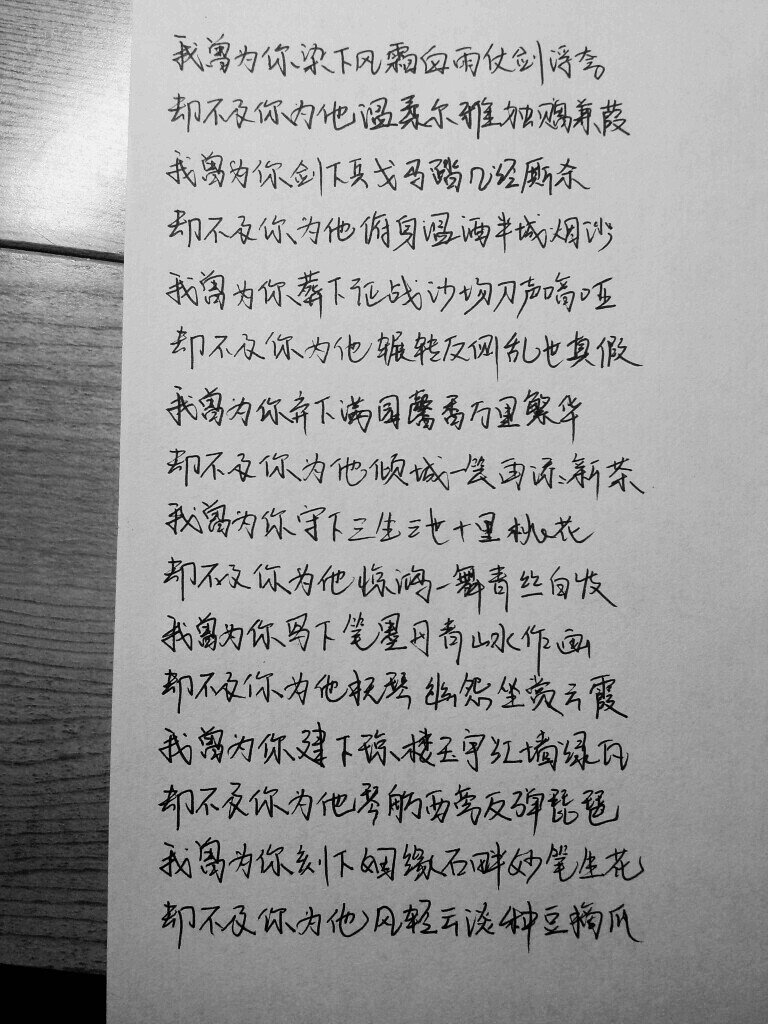 我曾为你染下风霜血雨仗剑浮夸
却不及你为他温柔尔雅独赐蒹葭
我曾为你剑下兵戈马踏几经厮杀
却不及你为他俯身温酒半城烟沙
我曾为你葬下征战沙场刀声嘶哑
却不及你为他辗转反侧乱也真假
我曾为你弃下满园馨香万里繁华
却不及你为他倾城一笑再添新茶
我曾为你守下三生三世十里桃花
却不及你为他惊鸿一舞青丝白发
我曾为你写下笔墨丹青山水作画
却不及你为他抚琴幽怨坐赏云霞
我曾为你建下琼楼玉宇红墙绿瓦
却不及你为他琴舫西莺反弹琵琶
我曾为你刻下姻缘石畔妙笔生花
却不及你为他风轻云淡种豆摘瓜